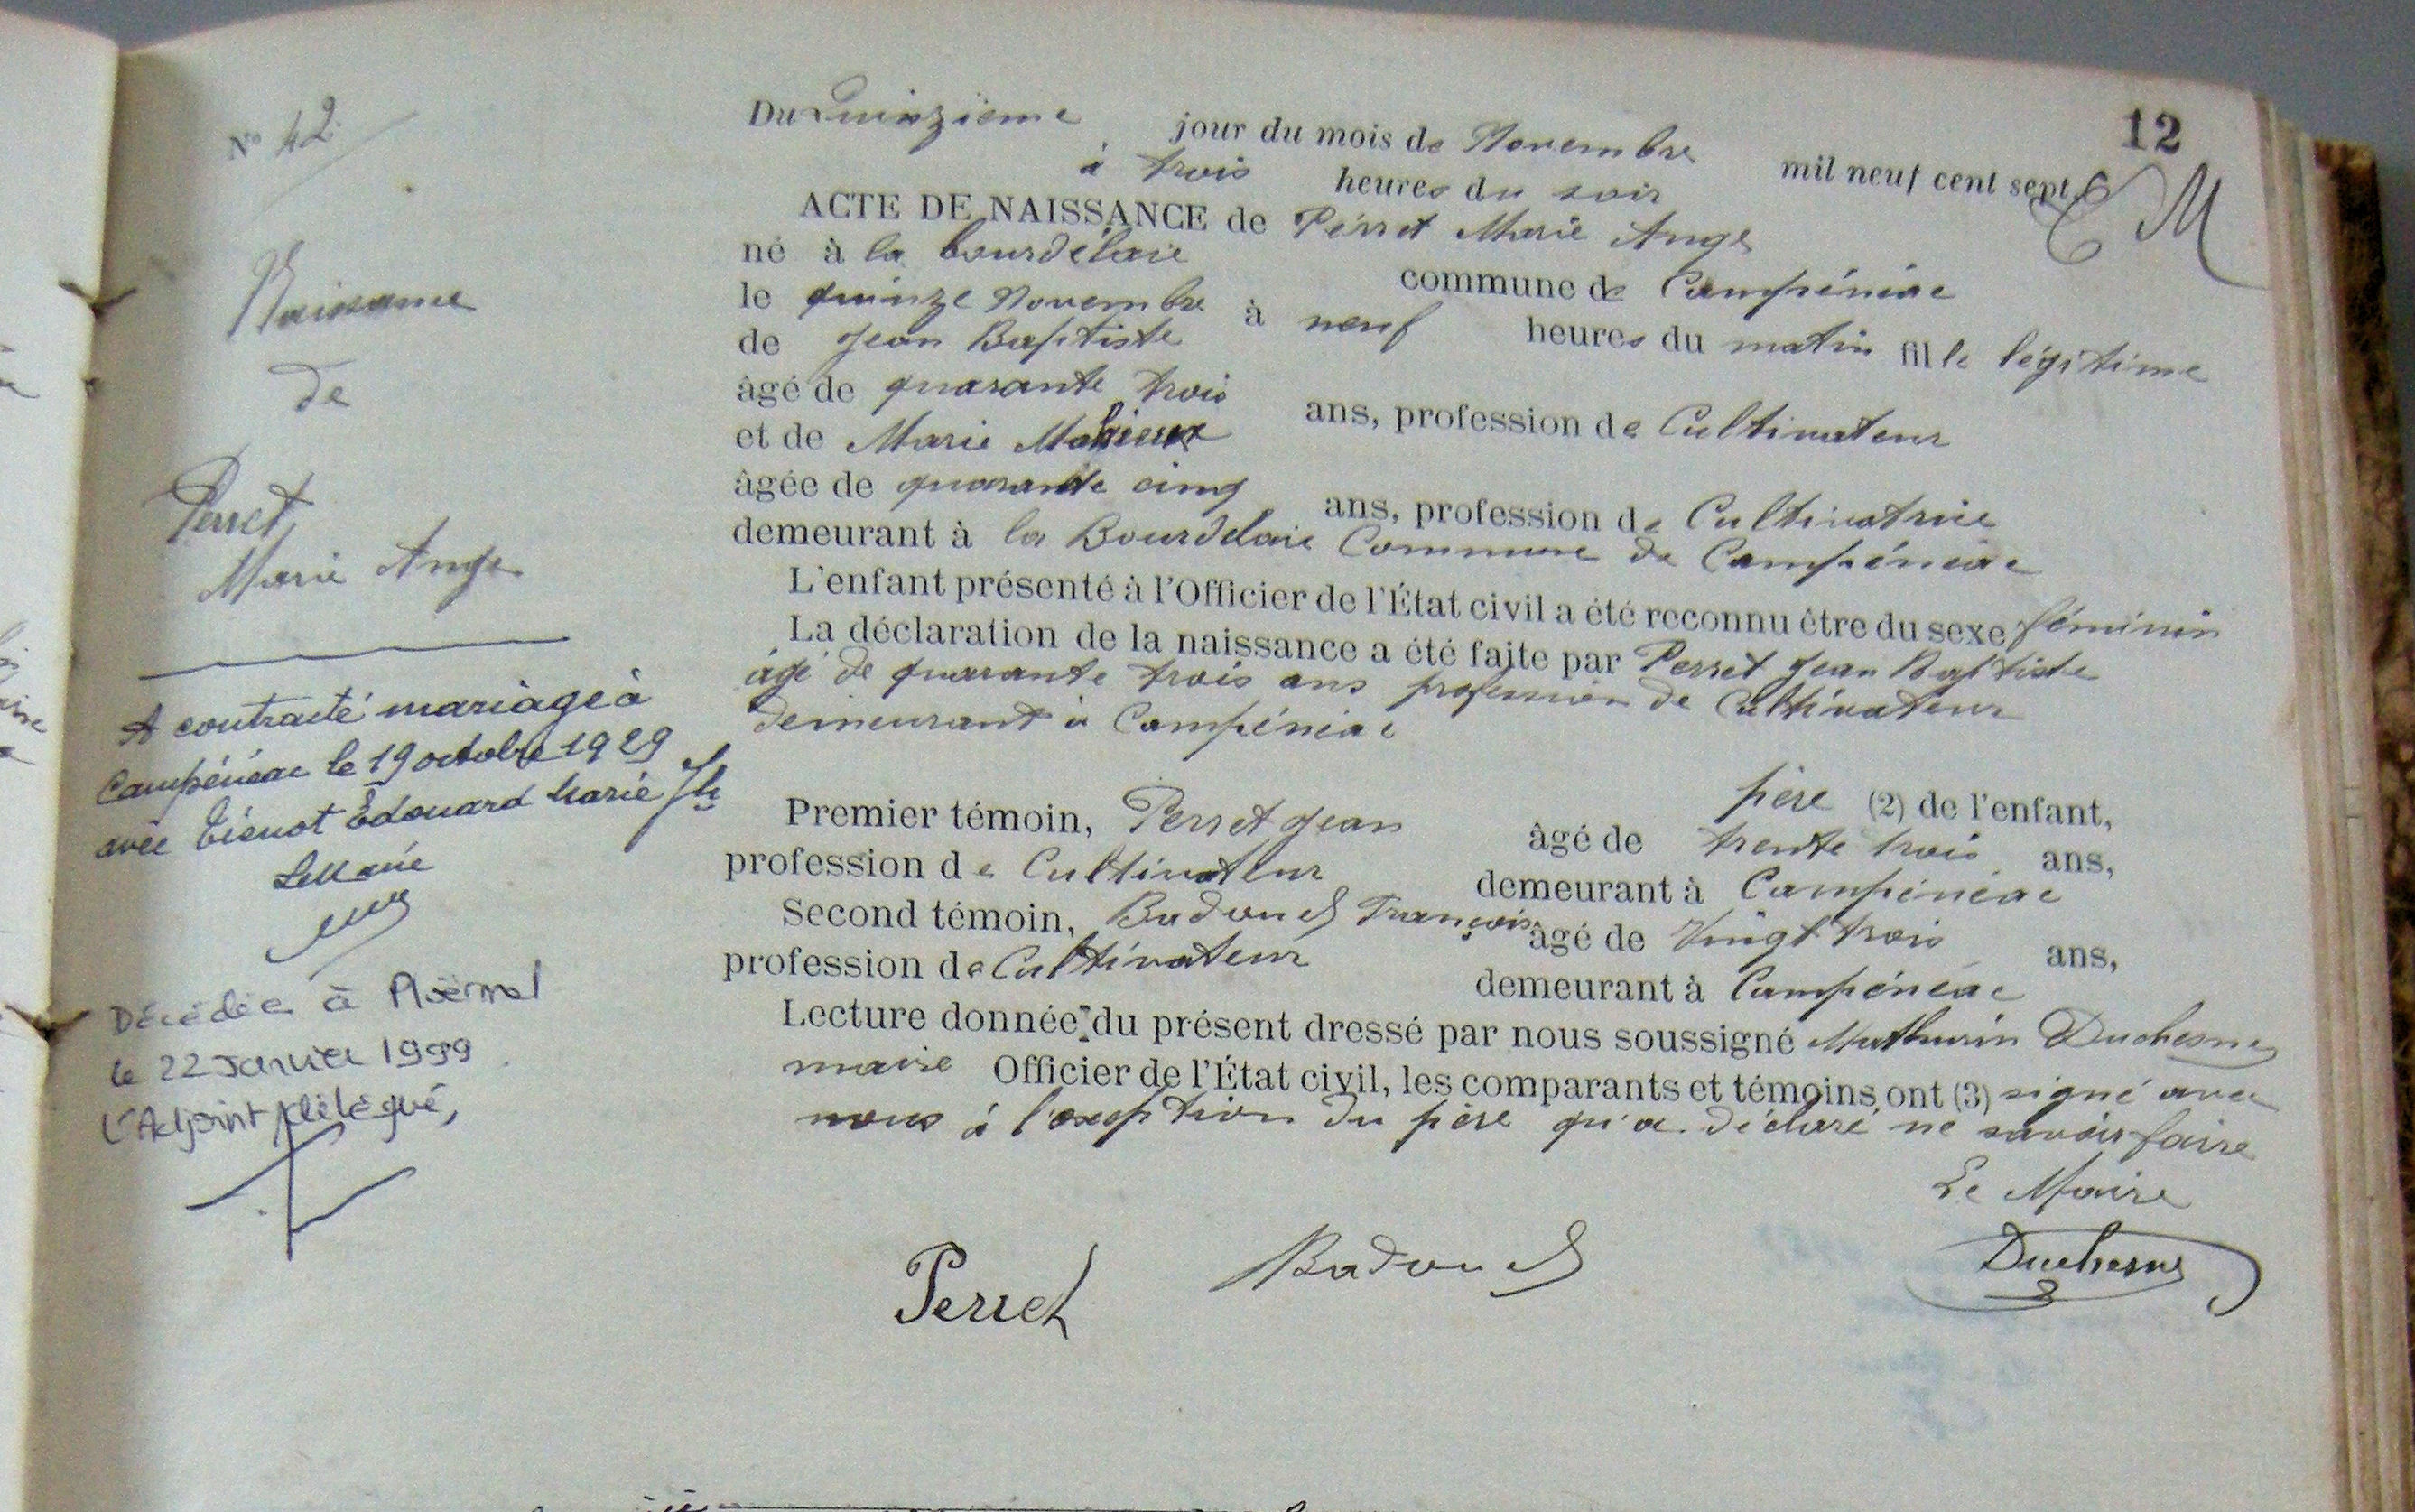 12
N° 42
Naissance
de
Perret
Marie Ange
A contracté mariage à
Campénéac le 19 octobre 1929
avec Tiénot Édouard Marie Jh
Le Maire
Décédée à Ploërmel
le 22 Janvier 1999
L'Adjoint délégué,
Du Quinzième jour du mois de Novembre mil neuf cent sept
à trois heures du soir
ACTE DE NAISSANCE de Perret Marie Ange
né à la bourdélaie commune de Campénéac
le quinze Novembre à neuf heures du matin fille légitime
de Jean Baptiste
âgé de quarante trois ans, profession de Cultivateur
et de Marie Mahieux
âgée de quarante cinq ans, profession de Cultivatrice
demeurant à la Bourdelaie Commune de Campénéac
L'enfant présenté à l'Officier de l'État civil a été reconnu être du sexe féminin
La déclaration de la naissance a été faite par Perret Jean Baptiste
âgé de quarante trois ans profession de Cultivateur
demeurant à Campénéac
père (2) de l'enfant,
Premier témoin, Perret Jean âgé de trente trois ans,
profession de Cultivateur demeurant à Campénéac
Second témoin, Badouel François âgé de Vingt trois ans,
profession de Cultivateur demeurant à Campénéac
Lecture donnée du présent dressé par nous soussigné Mathurin Duchesne
maire Officier de l'État civil, les comparants et témoins ont (3) signé avec
nous à l'exception du père qu'a déclaré ne savoir faire
Le Maire
Perret Badouel Duchesne